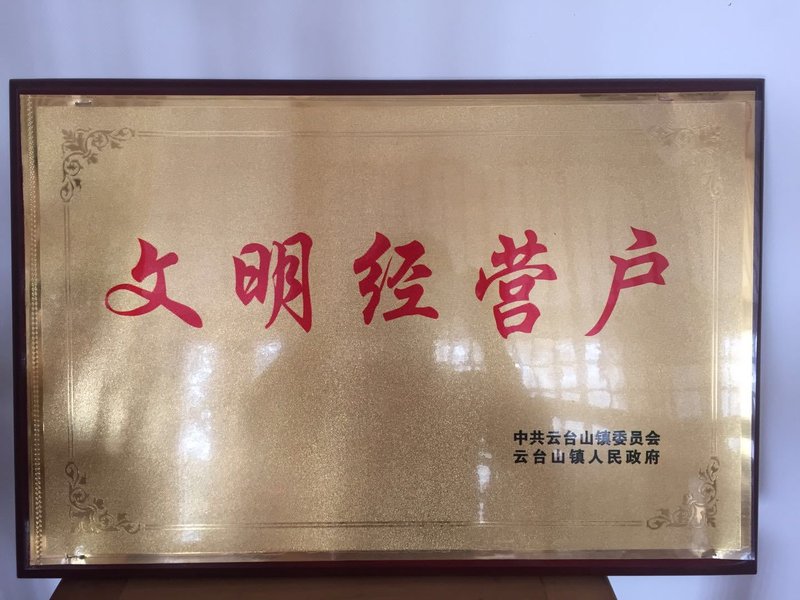 文明经营户
中共云台山镇委员会
云台山镇人民政府